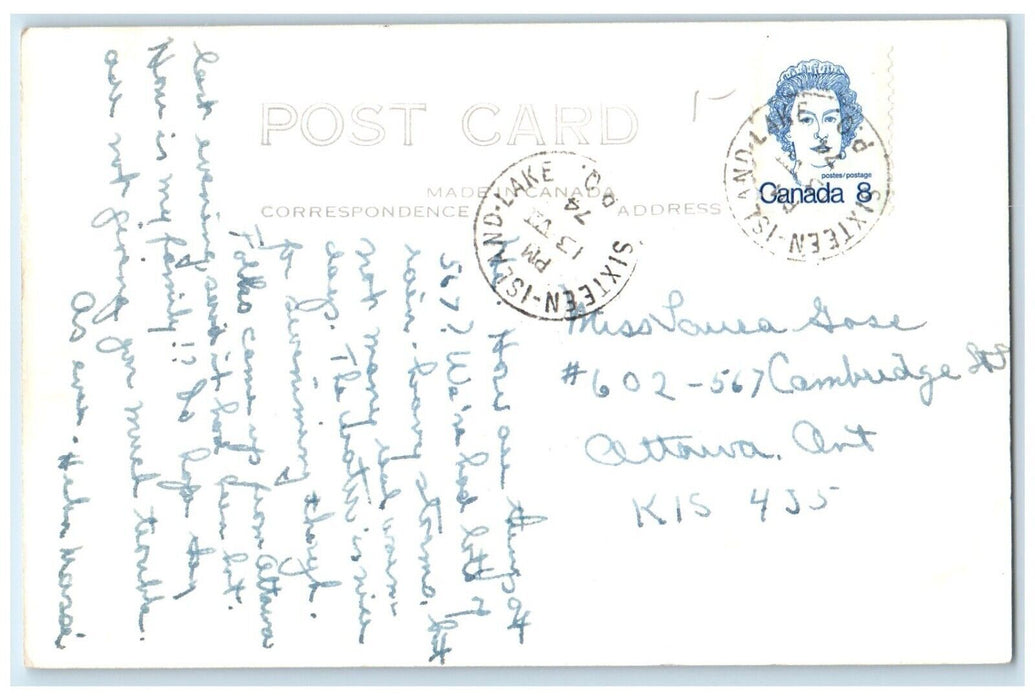 POST CARD
MADE IN CANADA
CORRESPONDENCE
ADDRESS
postes/postage
Canada 8
SIXTEEN-ISLAND-LAKE P.Q.
PM
13 VI
74
SIXTEEN-ISLAND-LAKE P.Q.
Miss Laura Gose
#602-567 Cambridge St S
Ottawa, Ont
K1S 4J5
How are things at
567? We've had lots of
rain, heavy storms, but
not many real warm
days. The water is nice
for swimming though.
Folks came up from Ottawa
last evening, said it had been hot.
How is my family!? Do hope they
are not giving you much trouble.
As ever - Helen